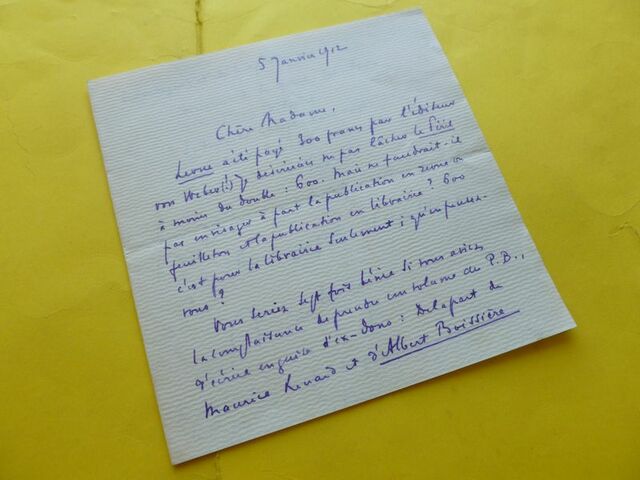 5 Janvier 1912
Chère Madame,
Lerne a été payé 300 francs par l'éditeur
von Weber(!) Je désirerais ne pas lâcher le Péril
à moins du double : 600. Mais ne faudrait-il
pas envisager à part la publication en revue ou
feuilleton et la publication en librairie? 600
c'est pour la librairie seulement ; qu'en pensez-
vous ?
Vous seriez sept fois bénie si vous aviez
la complaisance de prendre un volume du P.B.,
d'écrire en guise d'ex-dono : De la part de
Maurice Renard et d'Albert Boissière